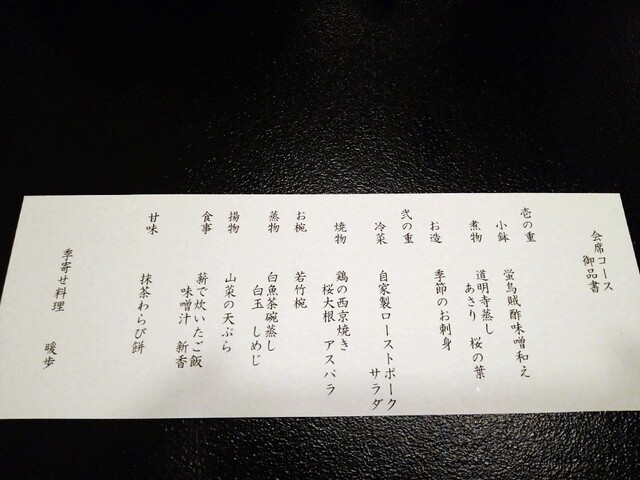 会席コース
御品書
壱の重
小鉢 蛍烏賊酢味噌和え
煮物 道明寺蒸し 桜の葉
あさり
お造 季節のお刺身
弐の重
冷菜 自家製ローストポーク
サラダ
焼物 鶏の西京焼き
桜大根 アスパラ
お椀 若竹椀
蒸物 白魚茶碗蒸し
白玉 しめじ
揚物 山菜の天ぷら
食事 薪で炊いたご飯
味噌汁 新香
甘味 抹茶わらび餅
季寄せ料理 暖歩